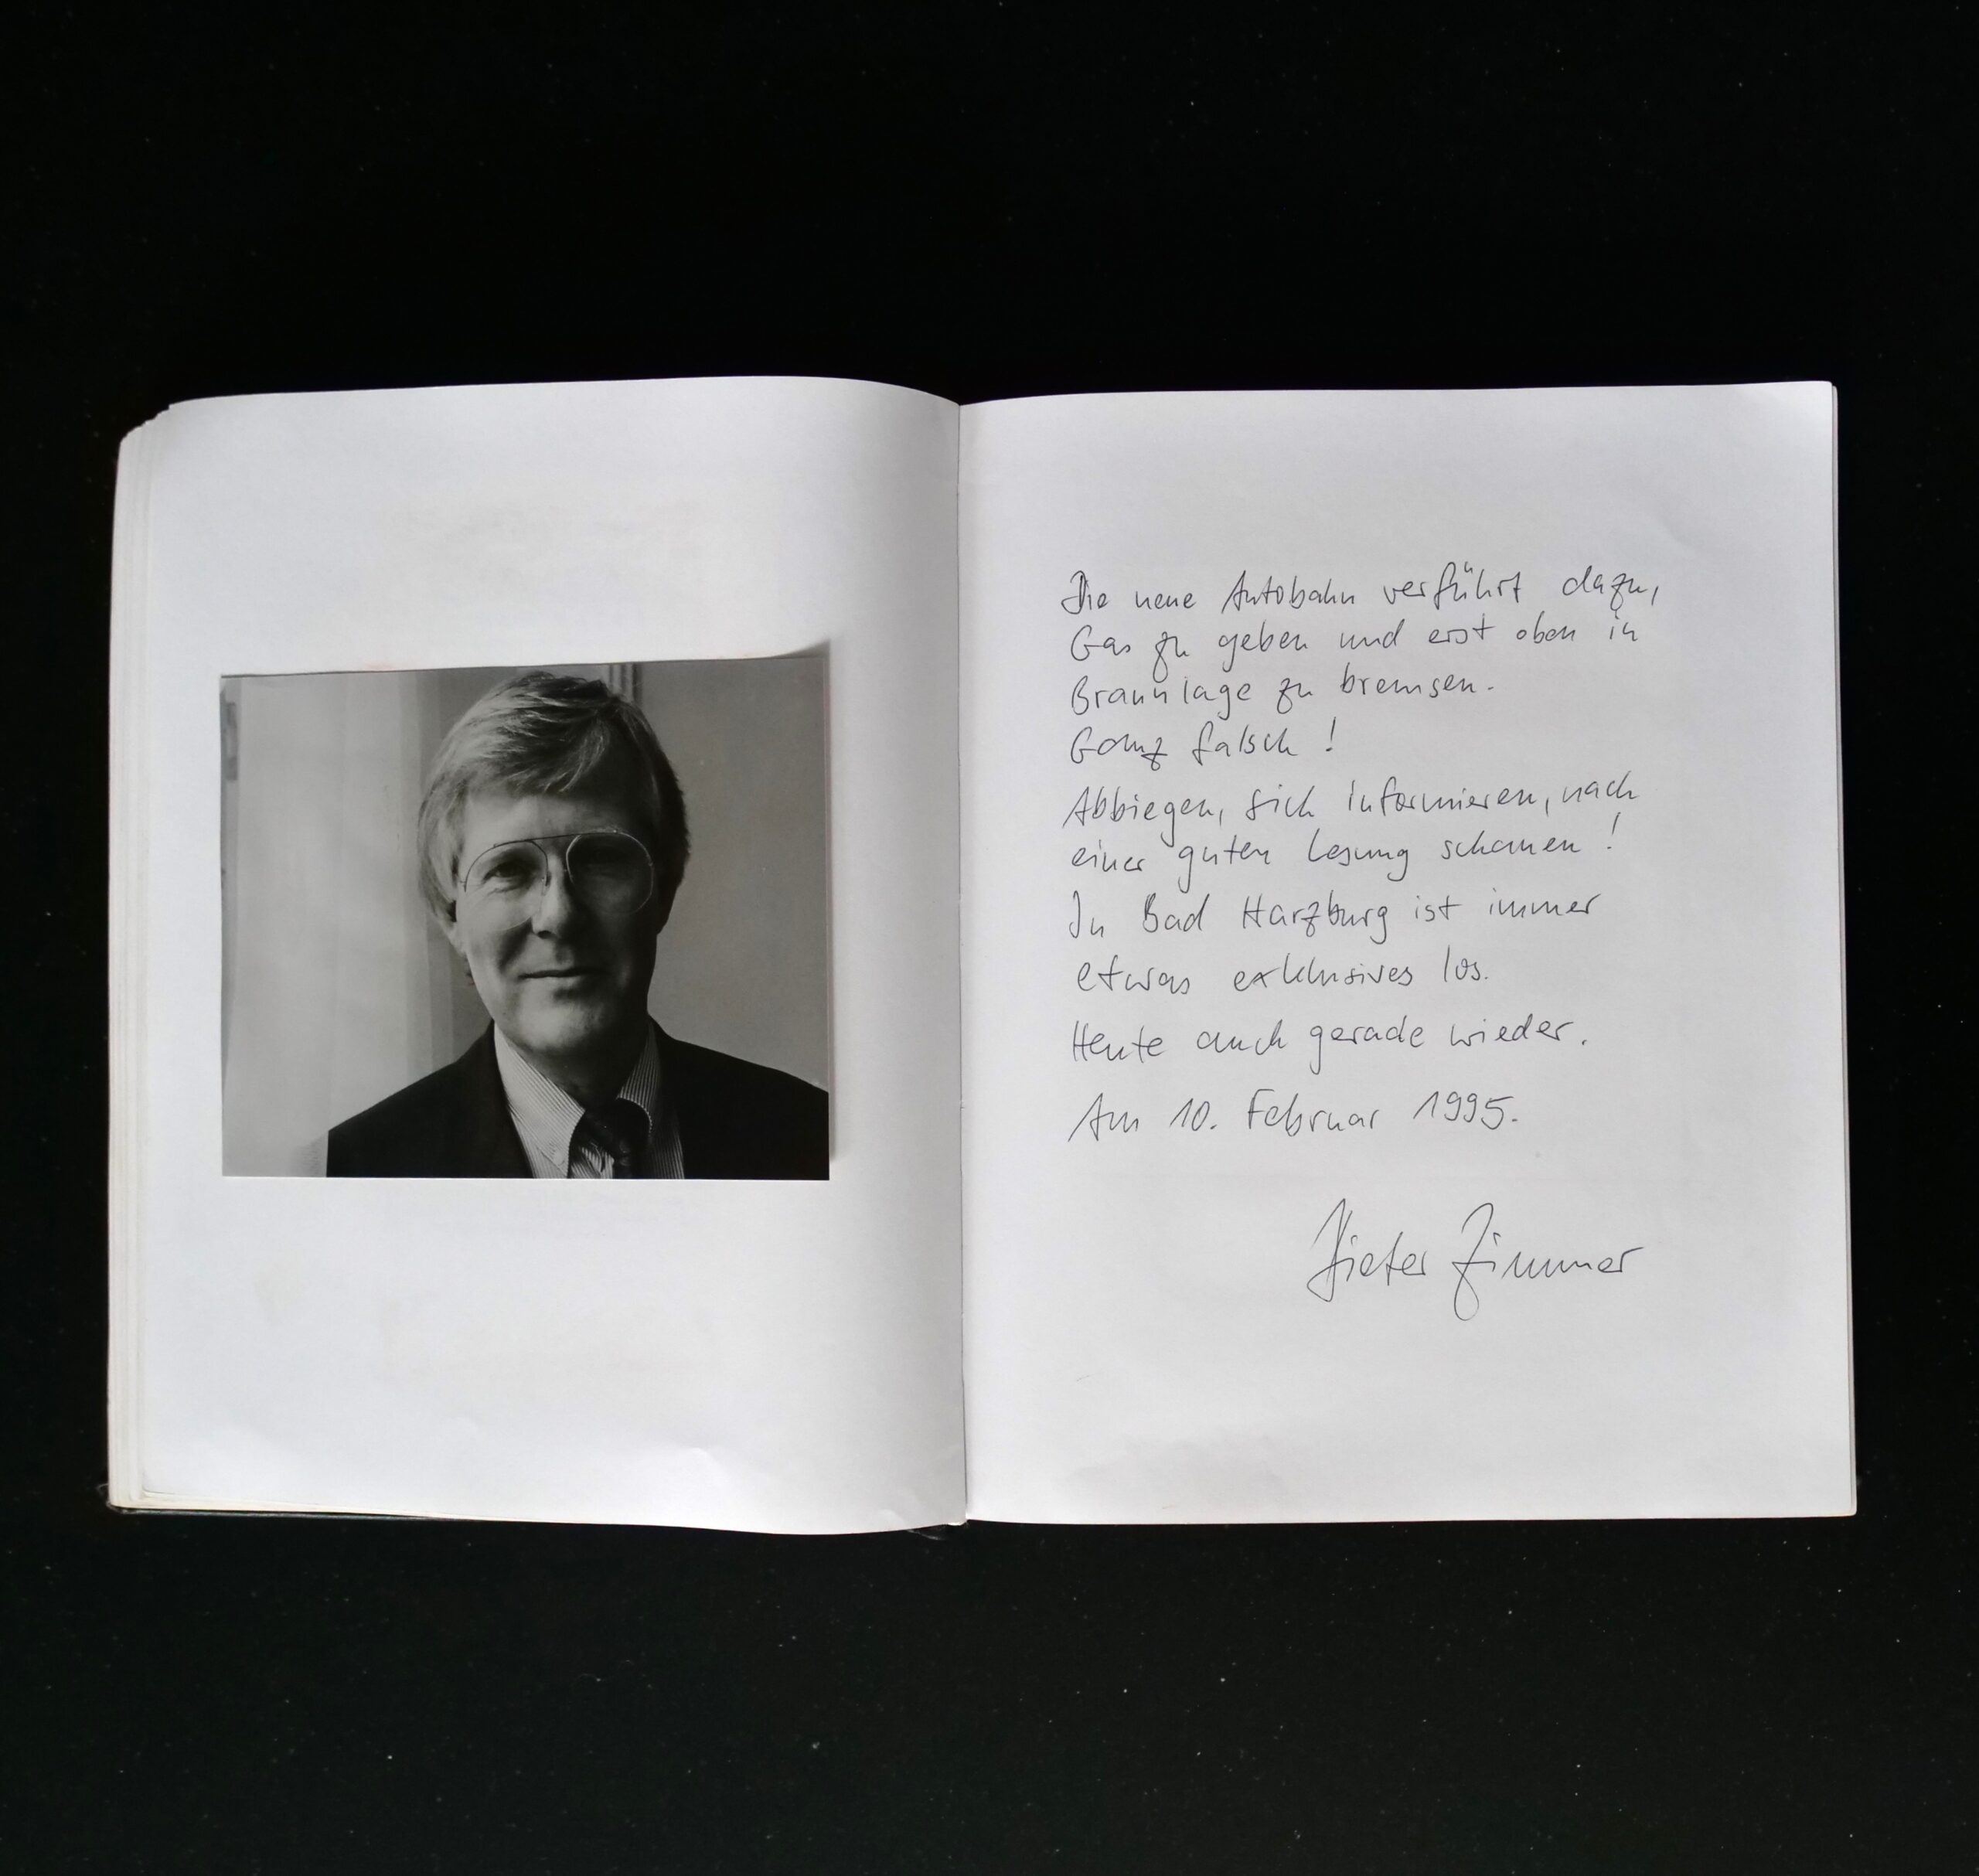 Die neue Autobahn verführt dazu,
Gas zu geben und erst oben in
Braunlage zu bremsen.
Ganz falsch !
Abbiegen, sich informieren, nach
einer guten Lesung schauen !
In Bad Harzburg ist immer
etwas exklusives los.
Heute auch gerade wieder.
Am 10. Februar 1995.
Dieter Zimmer